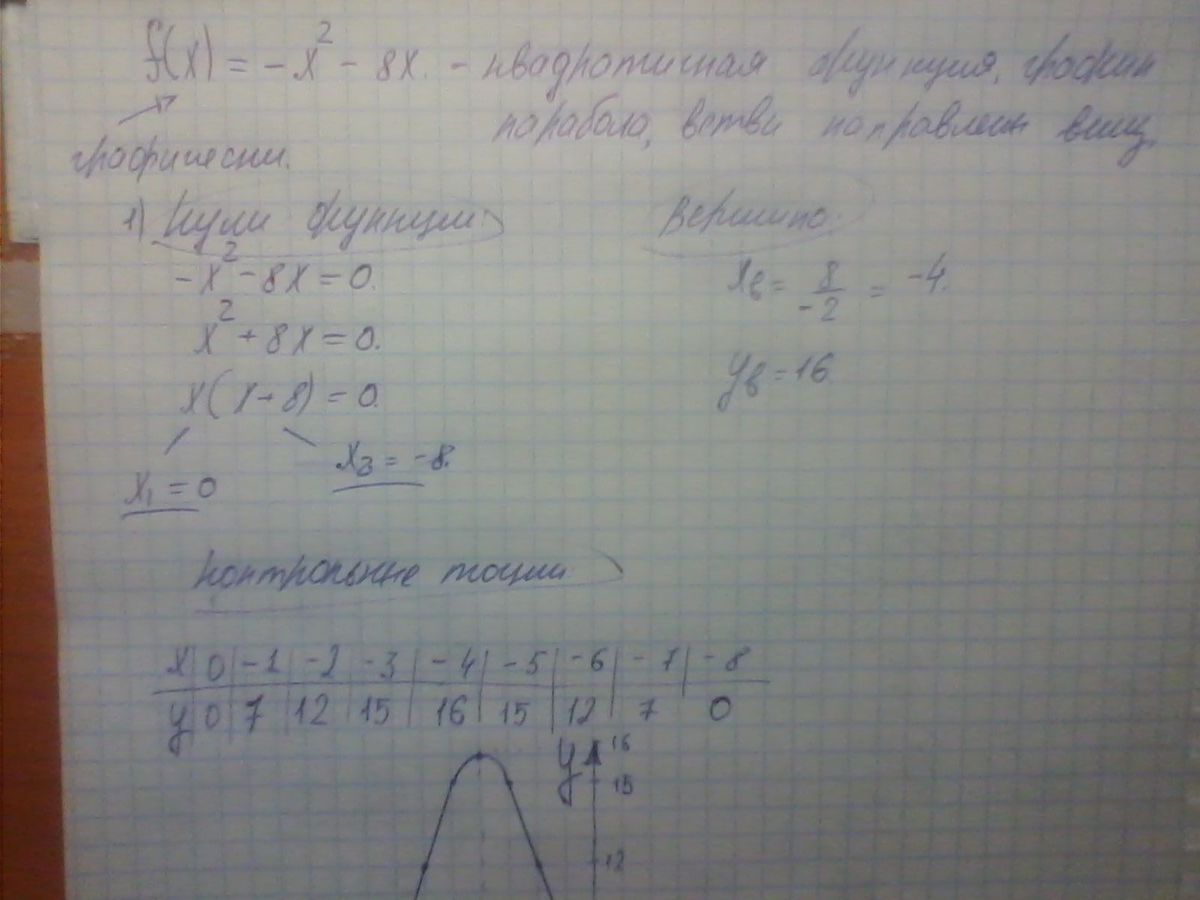 f(x) = -x² - 8x. - квадратичная функция, график
парабола, ветви направлены вниз.
графически.
1) Нули функции.
-x² - 8x = 0.
x² + 8x = 0.
x(x+8) = 0.
x₁ = 0
x₂ = -8.
Вершина.
xв = 8/-2 = -4.
yв = 16.
контрольные точки
x 0 -1 -2 -3 -4 -5 -6 -7 -8
y 0 7 12 15 16 15 12 7 0
y
16
15
12